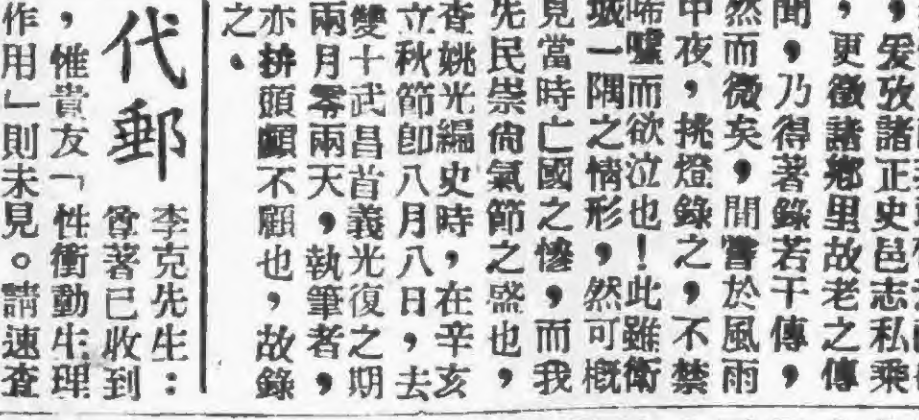 ，爰攷諸正史邑志私乘
，更徵諸鄉里故老之傳
聞，乃得著錄若干傳，
然而微矣，間嘗於風雨
中夜，挑燈錄之，不禁
唏噓而欲泣也！此雖衛
城一隅之情形，然可概
見當時亡國之慘，而我
先民崇尚氣節之盛也，
查姚光編史時，在辛亥
立秋節卽八月八日，去
雙十武昌首義光復之期
兩月零兩天，執筆者，
亦拚頭顱不顧也，故錄
之。
代郵
李克先生：
著已收到
，惟貴友「性衝動生理
作用」則未見。請速查